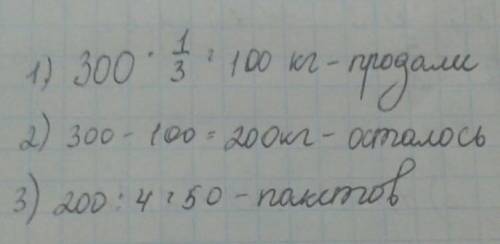 1) 300 · 1/3 = 100 кг - продали
2) 300 - 100 = 200 кг - осталось
3) 200 : 4 = 50 - пакетов